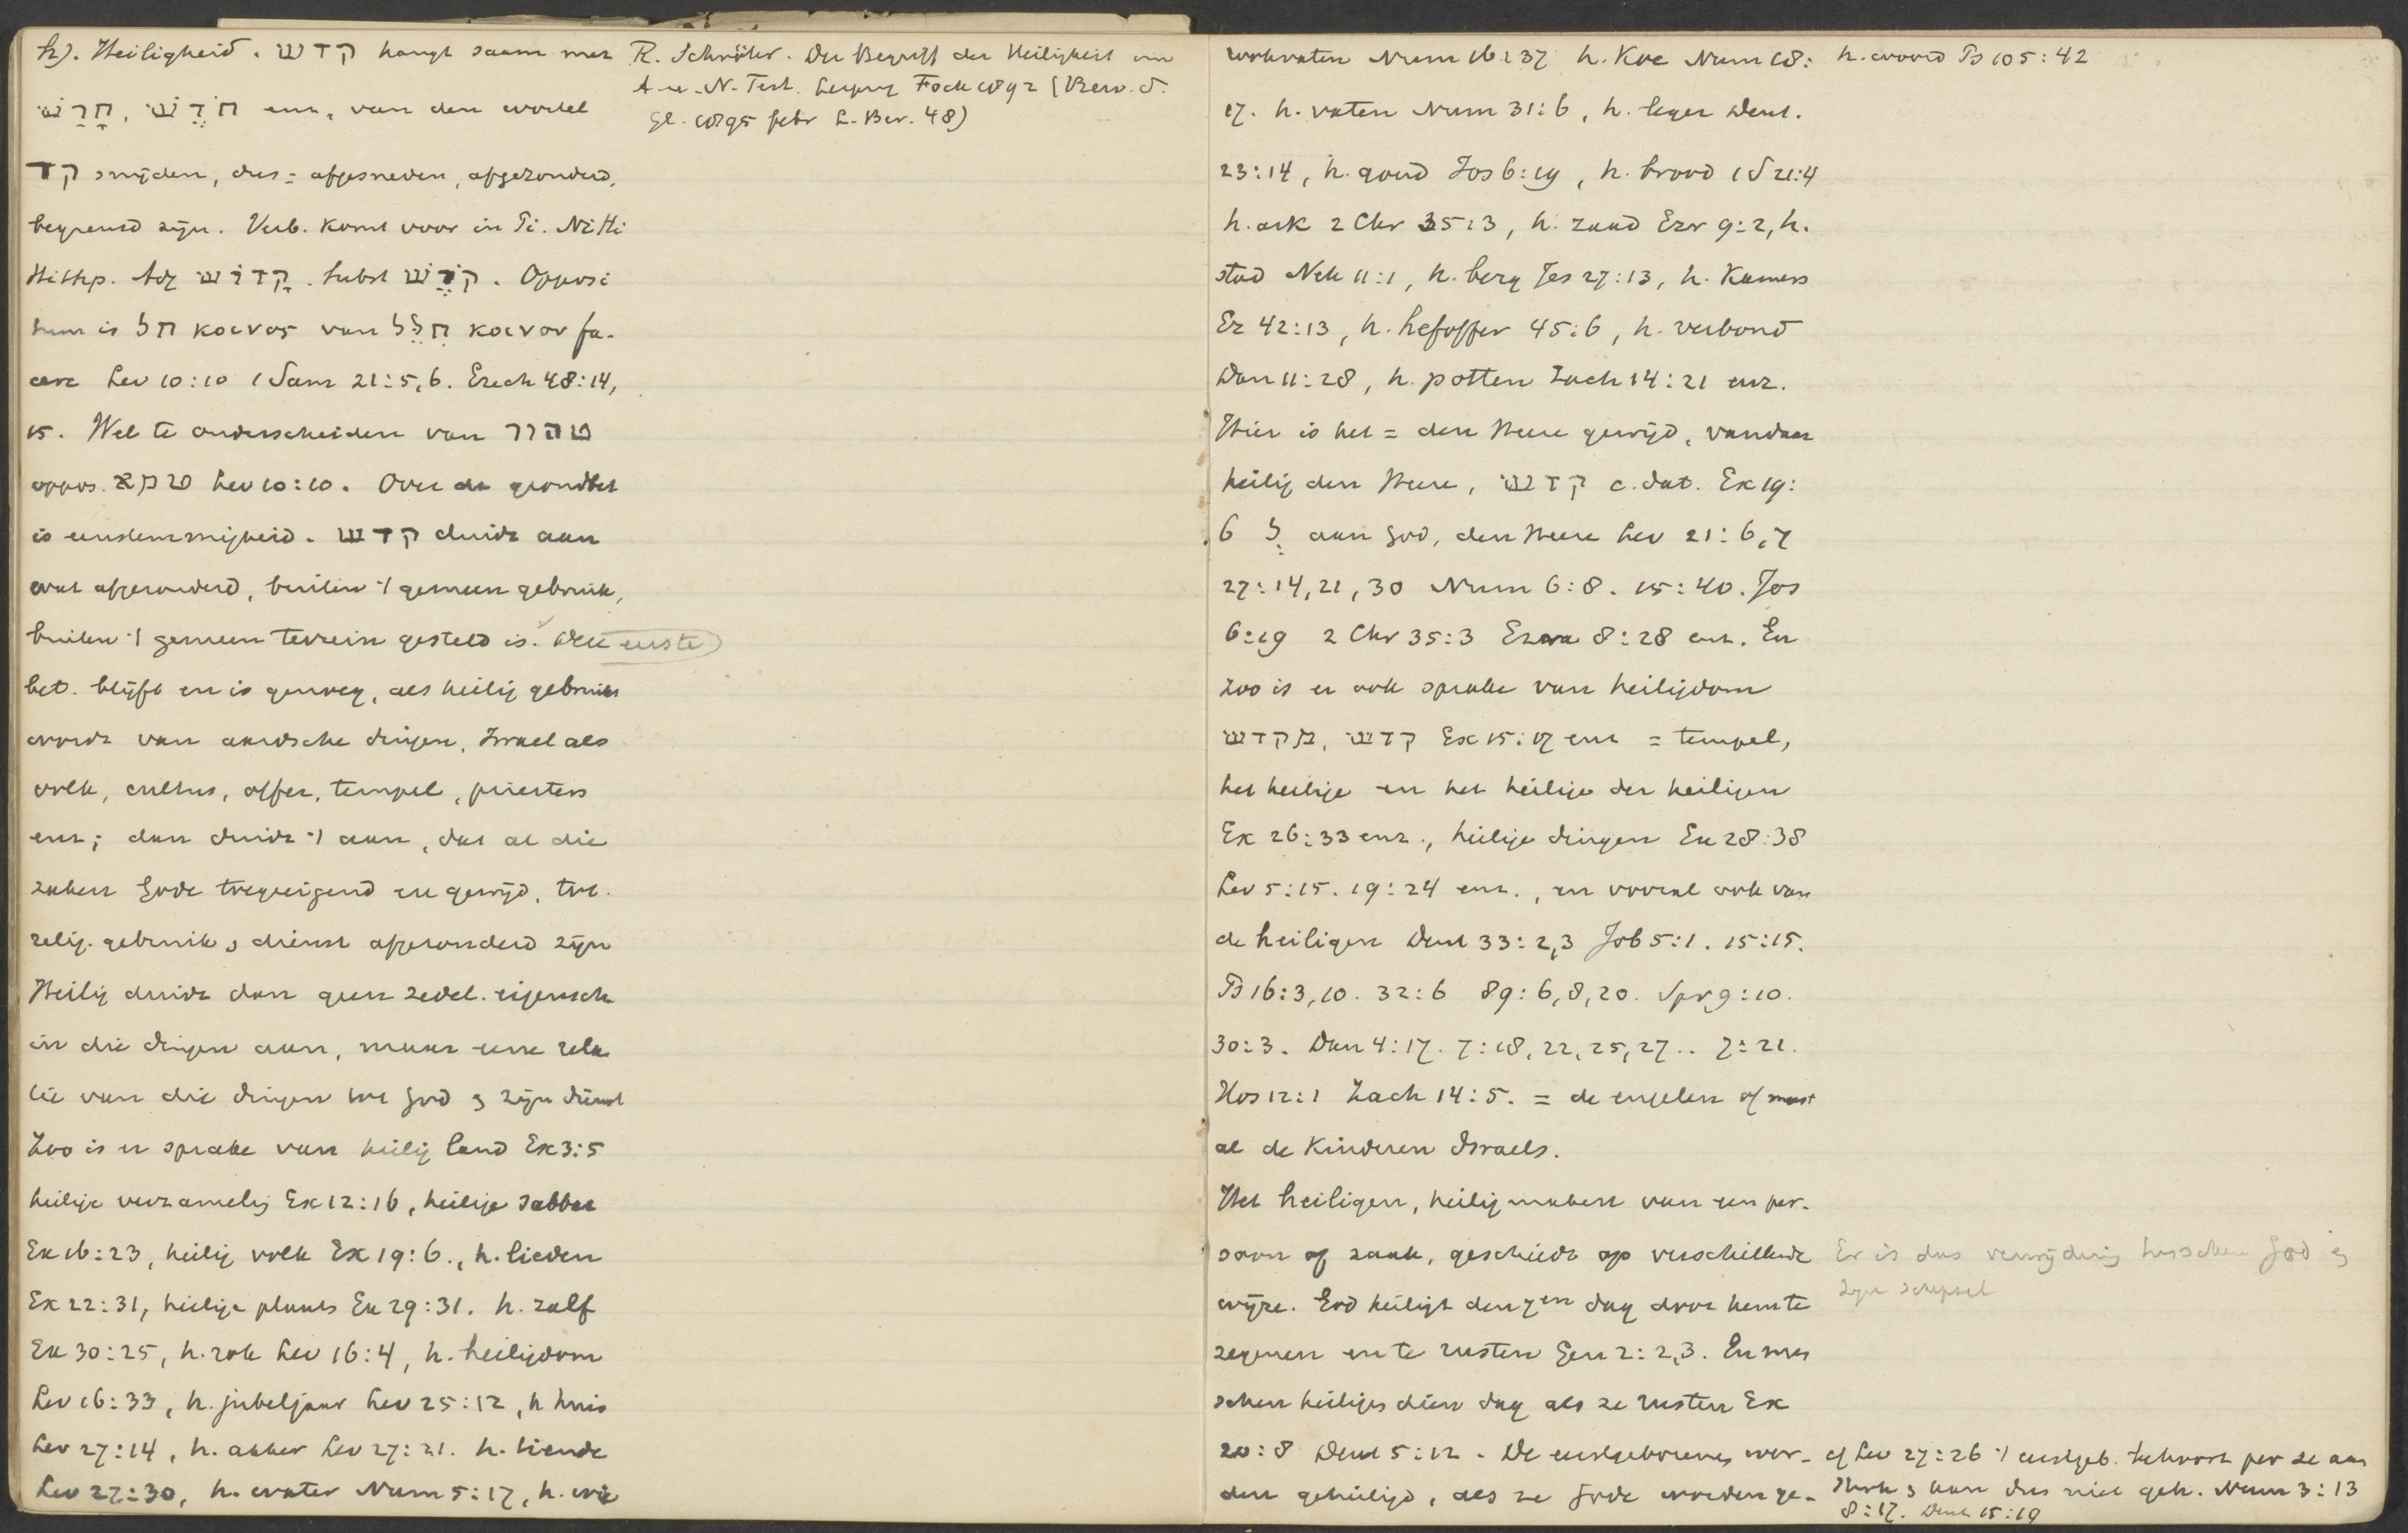 h). Heiligheid. קדש hangt saam met
חדש, חרש enz, van den wortel
קד snijden, dus = afgesneden, afgezonderd,
begrensd zijn. Verb. komt voor in Pi. Ni Hi
Hithp. Adj קדוש. Subst קדש. Opposi
tum is חל κοινος van חלל κοινον fa-
cere Lev 10:10 1 Sam 21:5,6. Ezech 48:14,
15. Wel te onderscheiden van טהור
oppos. טמא Lev 10:10. Over de grondbet
is eenstemmigheid. קדש duidt aan
wat afgezonderd, buiten 't gemeen gebruik,
buiten 't gemeen terrein gesteld is. Deze eerste
bet. blijft en is genoeg, als heilig gebruikt
wordt van aardsche dingen, Israel als
volk, cultus, offer, tempel, priesters
enz; dan duidt 't aan, dat al die
zaken Gode toegeeigend en gewijd, tot
relig. gebruik & dienst afgezonderd zijn
Heilig duidt dan geen zedel. eigensch
in die dingen aan, maar eene rela
tie van die dingen tot God & zijn dienst
Zoo is er sprake van heilig land Ex 3:5
heilige verzamelg Ex 12:16, heilige sabbat
Ex 16:23, heilig volk Ex 19:6., h. lieden
Ex 22:31, heilige plaats Ex 29:31. h. zalf
Ex 30:25, h. rok Lev 16:4, h. heiligdom
Lev 16:33, h. jubeljaar Lev 25:12, h huis
Lev 27:14, h. akker Lev 27:21. h. tiende
Lev 27:30, h. water Num 5:17, h. wie
R. Schröter. Der Begriff der Heiligkeit im
A. u. N. Test. Leipzig Fock 1892 (Bew. d.
Gl. 1895 febr L. Ber. 48)
rookvaten Num 16:37 h. Koe Num 18:
17. h. vaten Num 31:6, h. leger Deut.
23:14, h. goud Jos 6:19, h. brood 1 S 21:4
h. ark 2 Chr 35:3, h. zaad Ezr 9:2, h.
stad Neh 11:1, h. berg Jes 27:13, h. Kamers
Ez 42:13, h. hefoffer 45:6, h. verbond
Dan 11:28, h. potten Zach 14:21 enz.
Hier is het = den Heere gewijd, vandaar
heilig den Heere, קדש c. dat. Ex 19:
6 ל aan God, den Heere Lev 21:6,7
27:14,21,30 Num 6:8. 15:40. Jos
6:19 2 Chr 35:3 Ezra 8:28 enz. En
zoo is er ook sprake van heiligdom
מקדש, קדש Ex 15:17 enz = tempel,
het heilige en het heilige der heiligen
Ex 26:33 enz., heilige dingen Ex 28:38
Lev 5:15. 19:24 enz., en vooral ook van
de heiligen Deut 33:2,3 Job 5:1. 15:15.
Ps 16:3,10. 32:6 89:6,8,20. Spr 9:10.
30:3. Dan 4:17. 7:18,22,25,27.. 7:21.
Hos 12:1 Zach 14:5. = de engelen of meest
al de Kinderen Israels.
Het heiligen, heiligmaken van een per-
soon of zaak, geschiedt op verschillende
wijze. God heiligt den 7en dag door hem te
zegenen en te rusten Gen 2:2,3. En men
schen heiligen dien dag als ze rusten Ex
20:8 Deut 5:12. De eerstgeborenes wor-
den geheiligd, als ze Gode worden ge-
h. woord Ps 105:42
Er is dus verwijdering tusschen God &
zijn schepsel
cf Lev 27:26 't eerstgeb. behoort per se aan
Heere & kan dus niet geh. Num 3:13
8:17. Deut 15:19